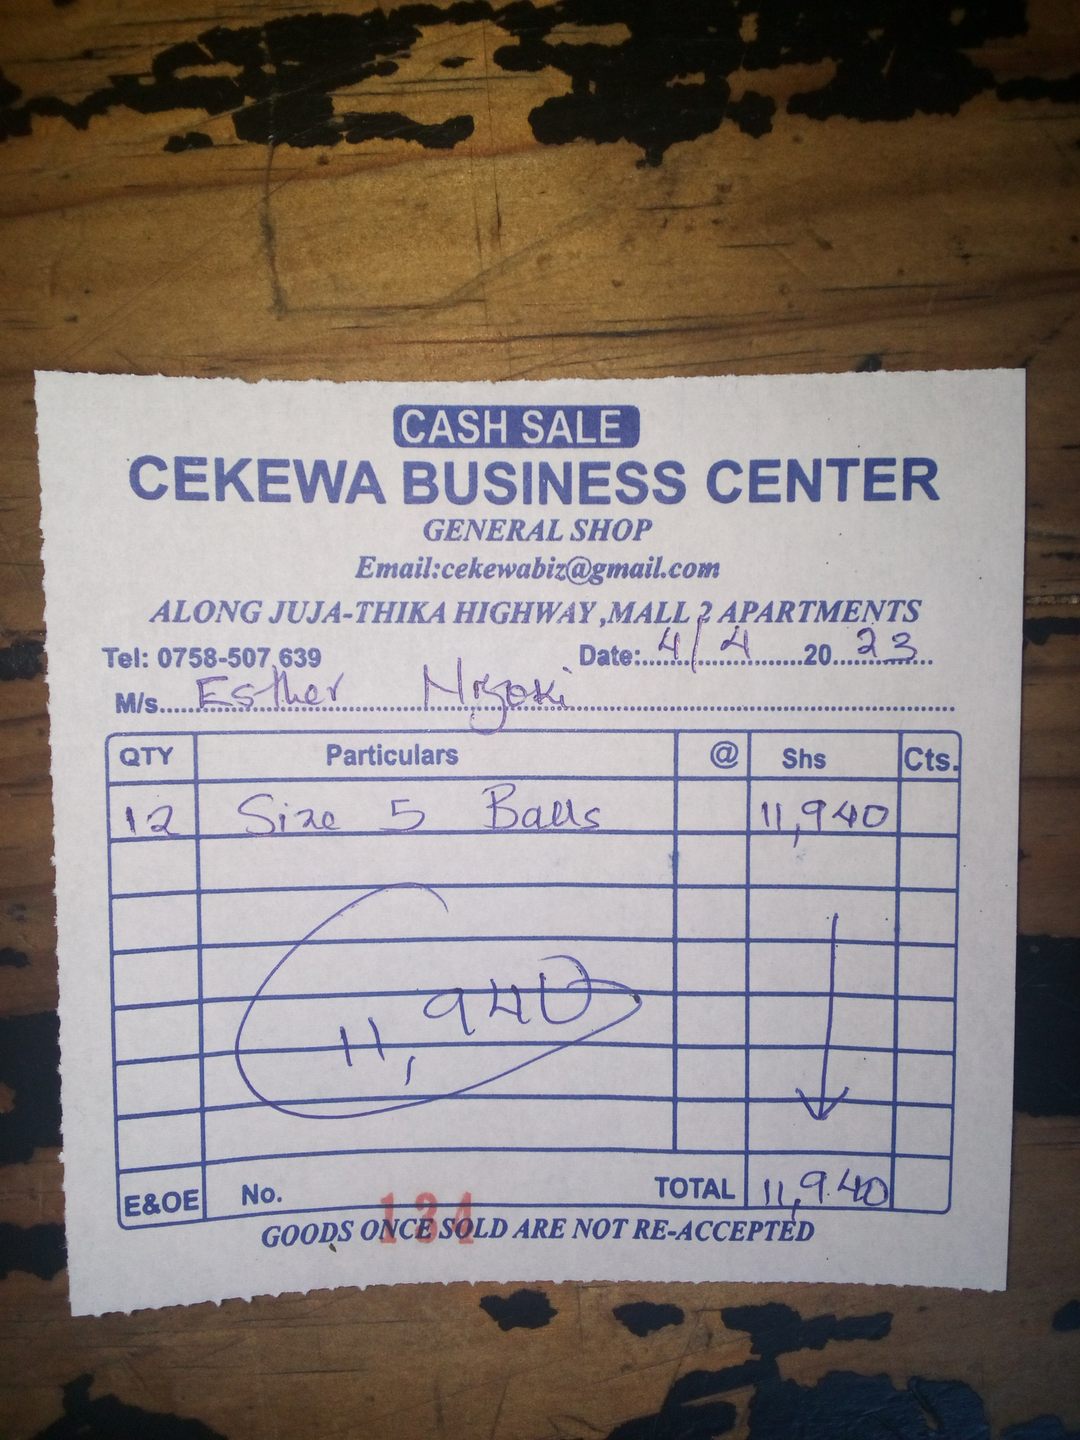 CASH SALE
CEKEWA BUSINESS CENTER
GENERAL SHOP
Email:cekewabiz@gmail.com
ALONG JUJA-THIKA HIGHWAY ,MALL 2 APARTMENTS
Tel: 0758-507 639 Date:....4/4....20..23..
M/s.....Esther Njoki
QTY Particulars @ Shs Cts.
12 Size 5 Balls 11,940
11,940
E&OE No. 134 TOTAL 11,940
GOODS ONCE SOLD ARE NOT RE-ACCEPTED